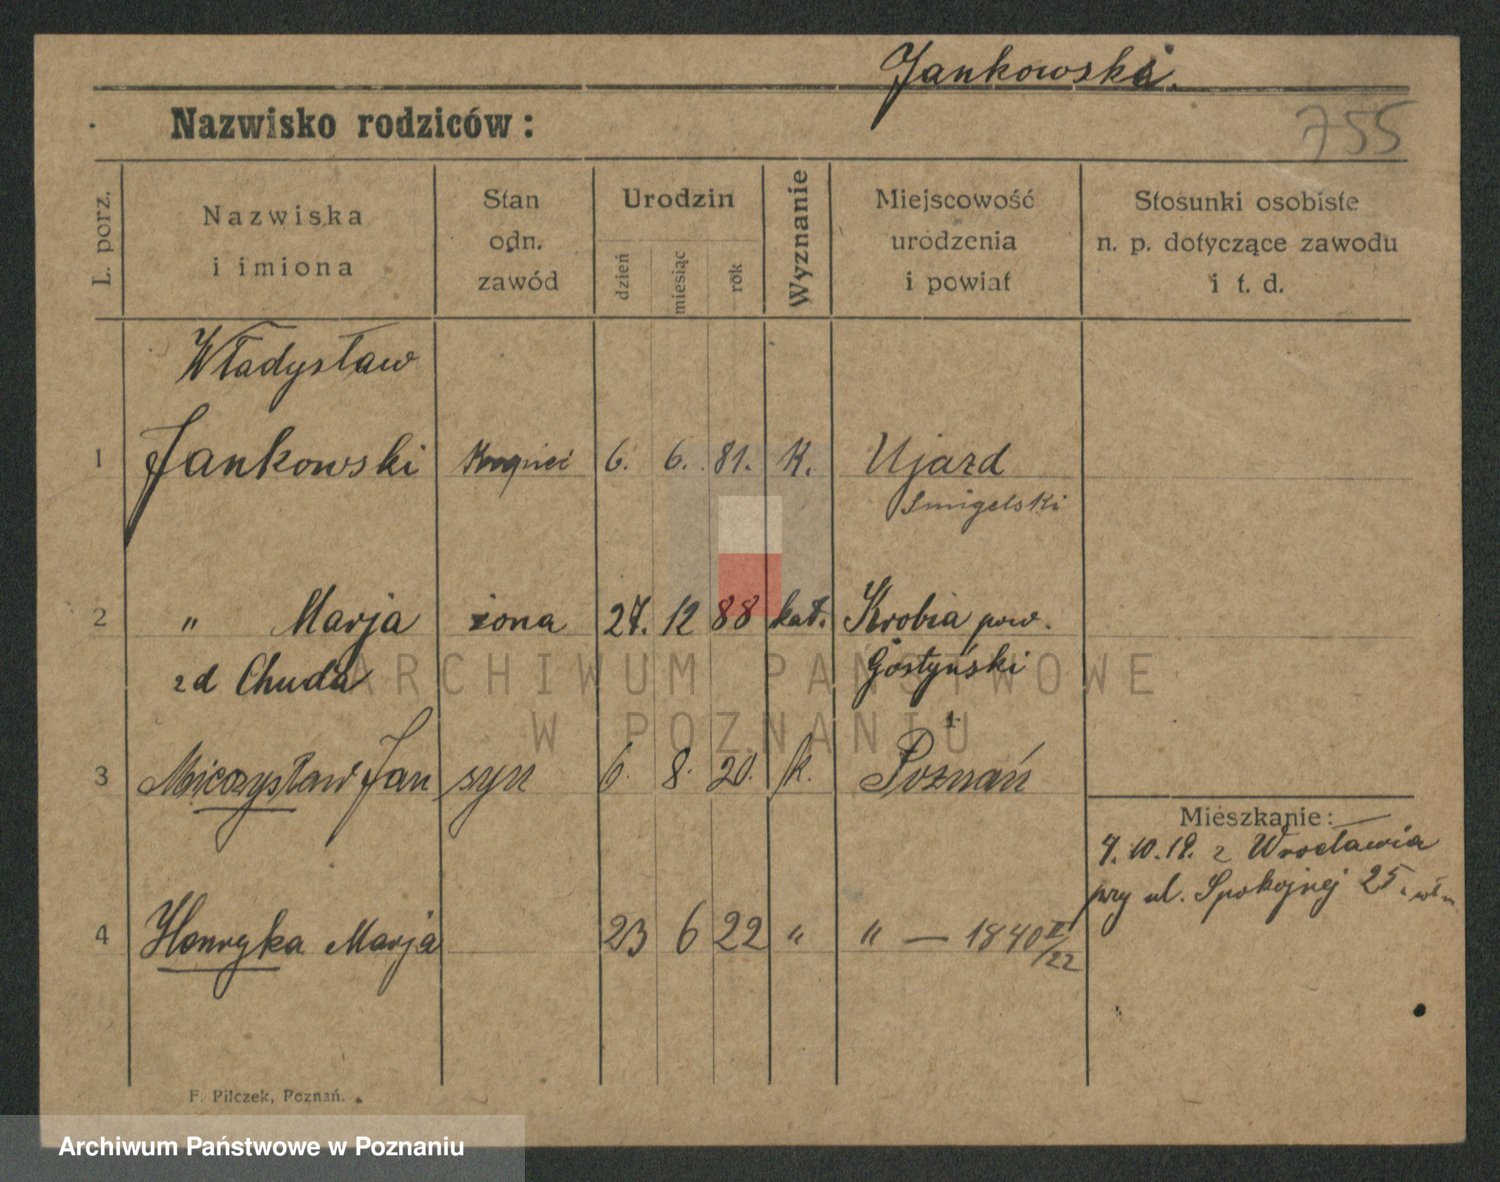 Jankowski.
Nazwisko rodziców:
755
L. porz.
Nazwiska
i imiona
Stan
odn.
zawód
Urodzin
dzień
miesiąc
rok
Wyznanie
Miejscowość
urodzenia
i powiat
Stosunki osobiste
n. p. dotyczące zawodu
i t. d.
Władysław
1 Jankowski kupiec 6. 6. 81. K. Ujazd
Smigelski
2 " Marja żona 27. 12 88 kat. Krobia pow.
zd Chuda Gostyński
ARCHIWUM PAŃSTWOWE
W POZNANIU
3 Mieczysław Jan syn 6. 8. 20. k. Poznań
Mieszkanie:
7.10.19. z Wrocławia
przy ul. Spokojnej 25
4 Henryka Marja 23 6 22 " " — 1840 II/22
F. Pilczek, Poznań.
Archiwum Państwowe w Poznaniu